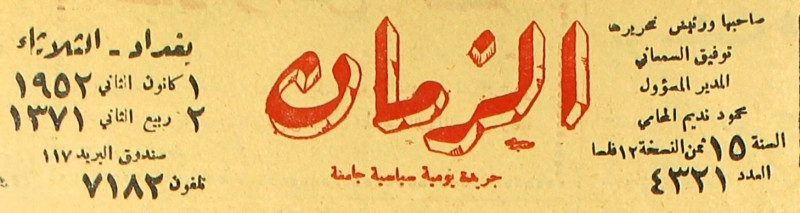 صاحبها ورئيس تحريرها
توفيق السمعاني
المدير المسؤول
محمود نديم المحامي
السنة ١٥ ثمن النسخة ١٢ فلسا
العدد ٤٣٢١
الزمان
جريدة يومية سياسية جامعة
بغداد - الثلاثاء
١ كانون الثاني ١٩٥٢
٢ ربيع الثاني ١٣٧١
صندوق البريد ١١٧
تلفون ٧١٨٢